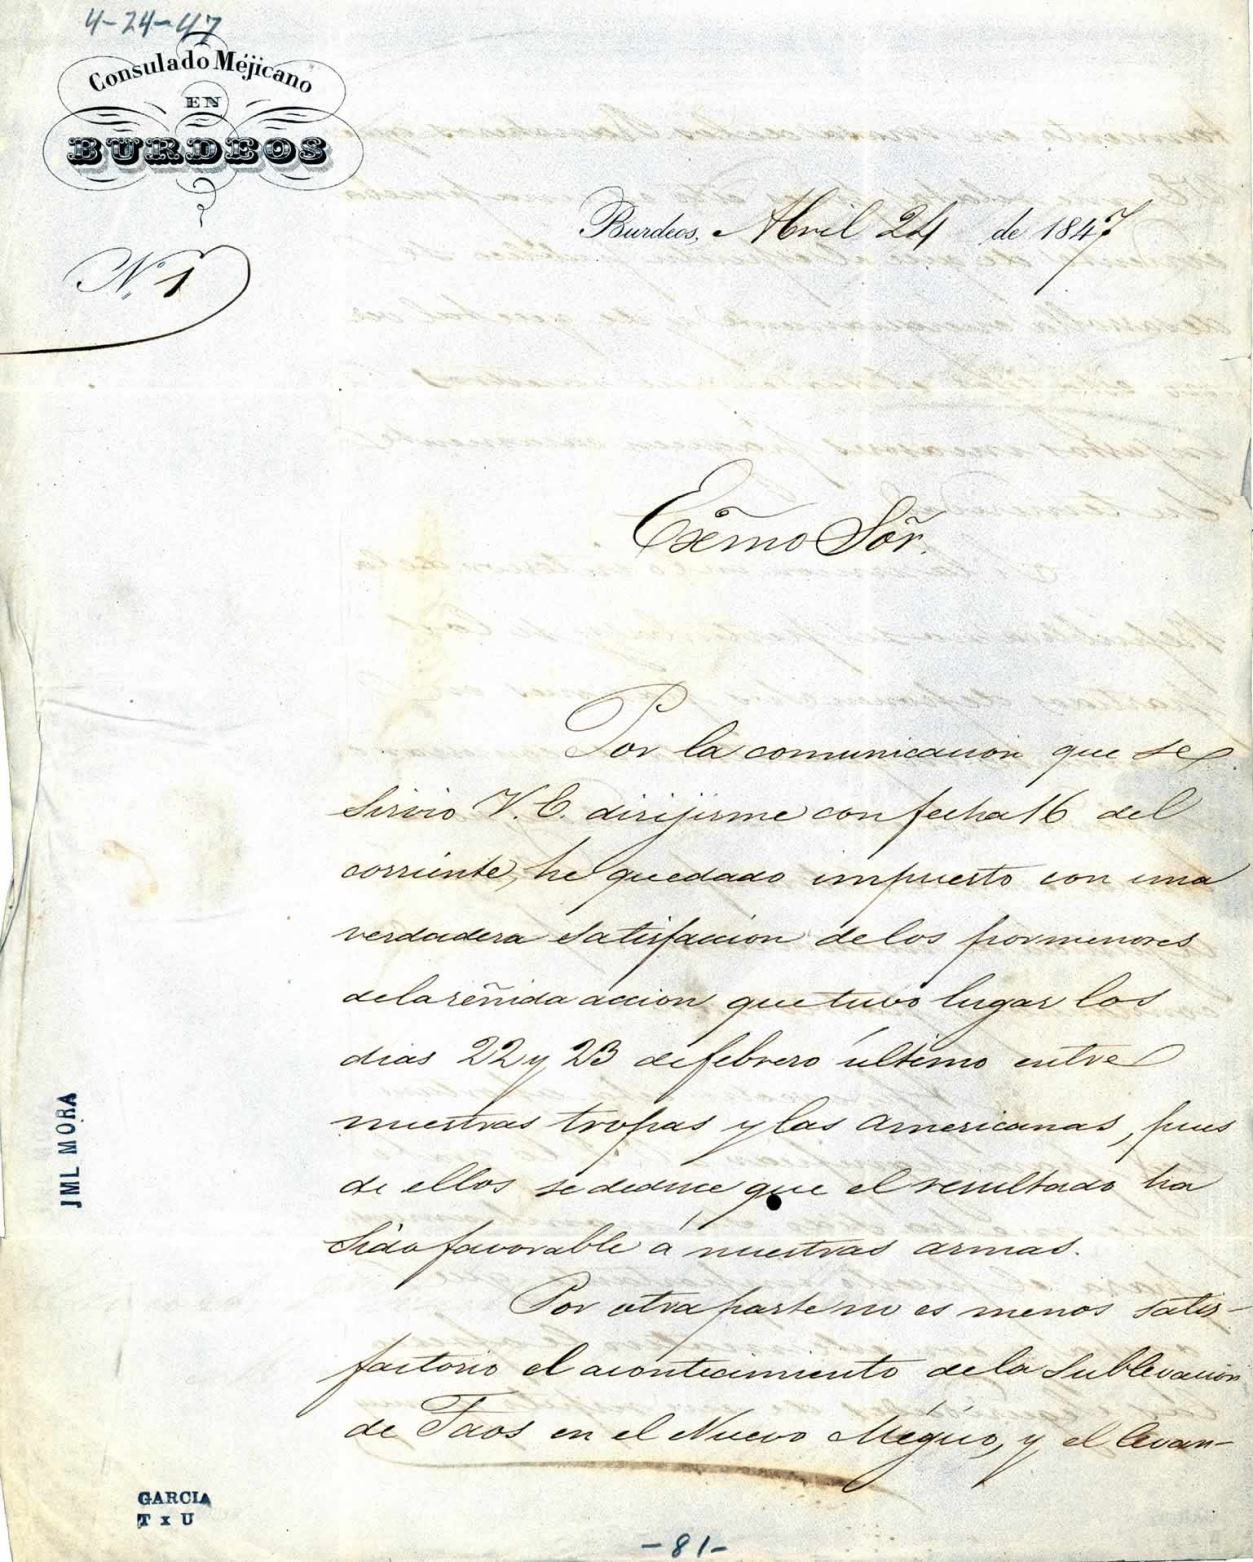 4-24-47
Consulado Méjicano
EN
BURDEOS
Burdeos, Abril 24 de 1847
N. 1
Exm̃o Sõr.
Por la comunicacion que se
sirvio V. E. dirijirme con fecha 16 del
corriente, he quedado impuesto con una
verdadera satisfaccion de los pormenores
de la reñida accion que tuvo lugar los
dias 22 y 23 de febrero último entre
nuestras tropas y las americanas, pues
de ellos se deduce que el resultado ha
sido favorable á nuestras armas.
Por otra parte no es menos satis-
factorio el acontecimiento de la sublevacion
de Taos en el Nuevo Mégico, y el levan-
JML MORA
GARCIA
T x U
-81-